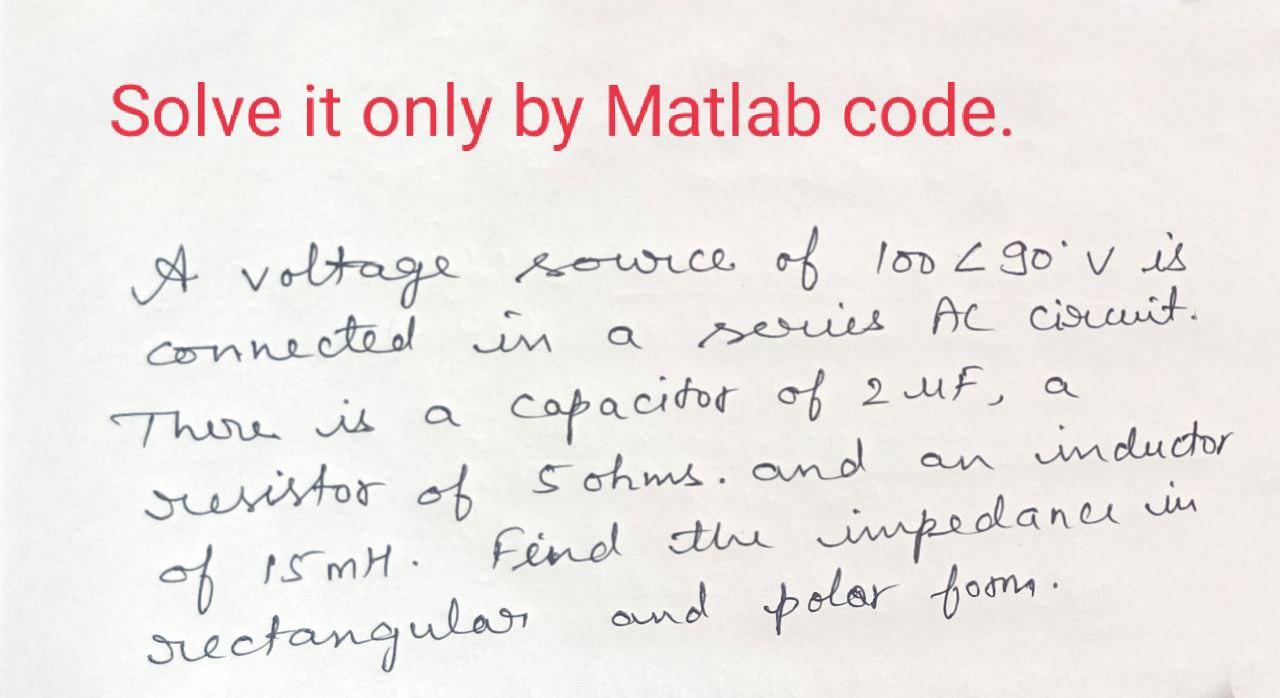 Solve it only by Matlab code.
A voltage source of 100 ∠ 90° V is
connected in a series AC circuit.
There is a capacitor of 2 μF, a
resistor of 5 ohms. and an inductor
of 15 mH. Find the impedance in
rectangular and polar form.